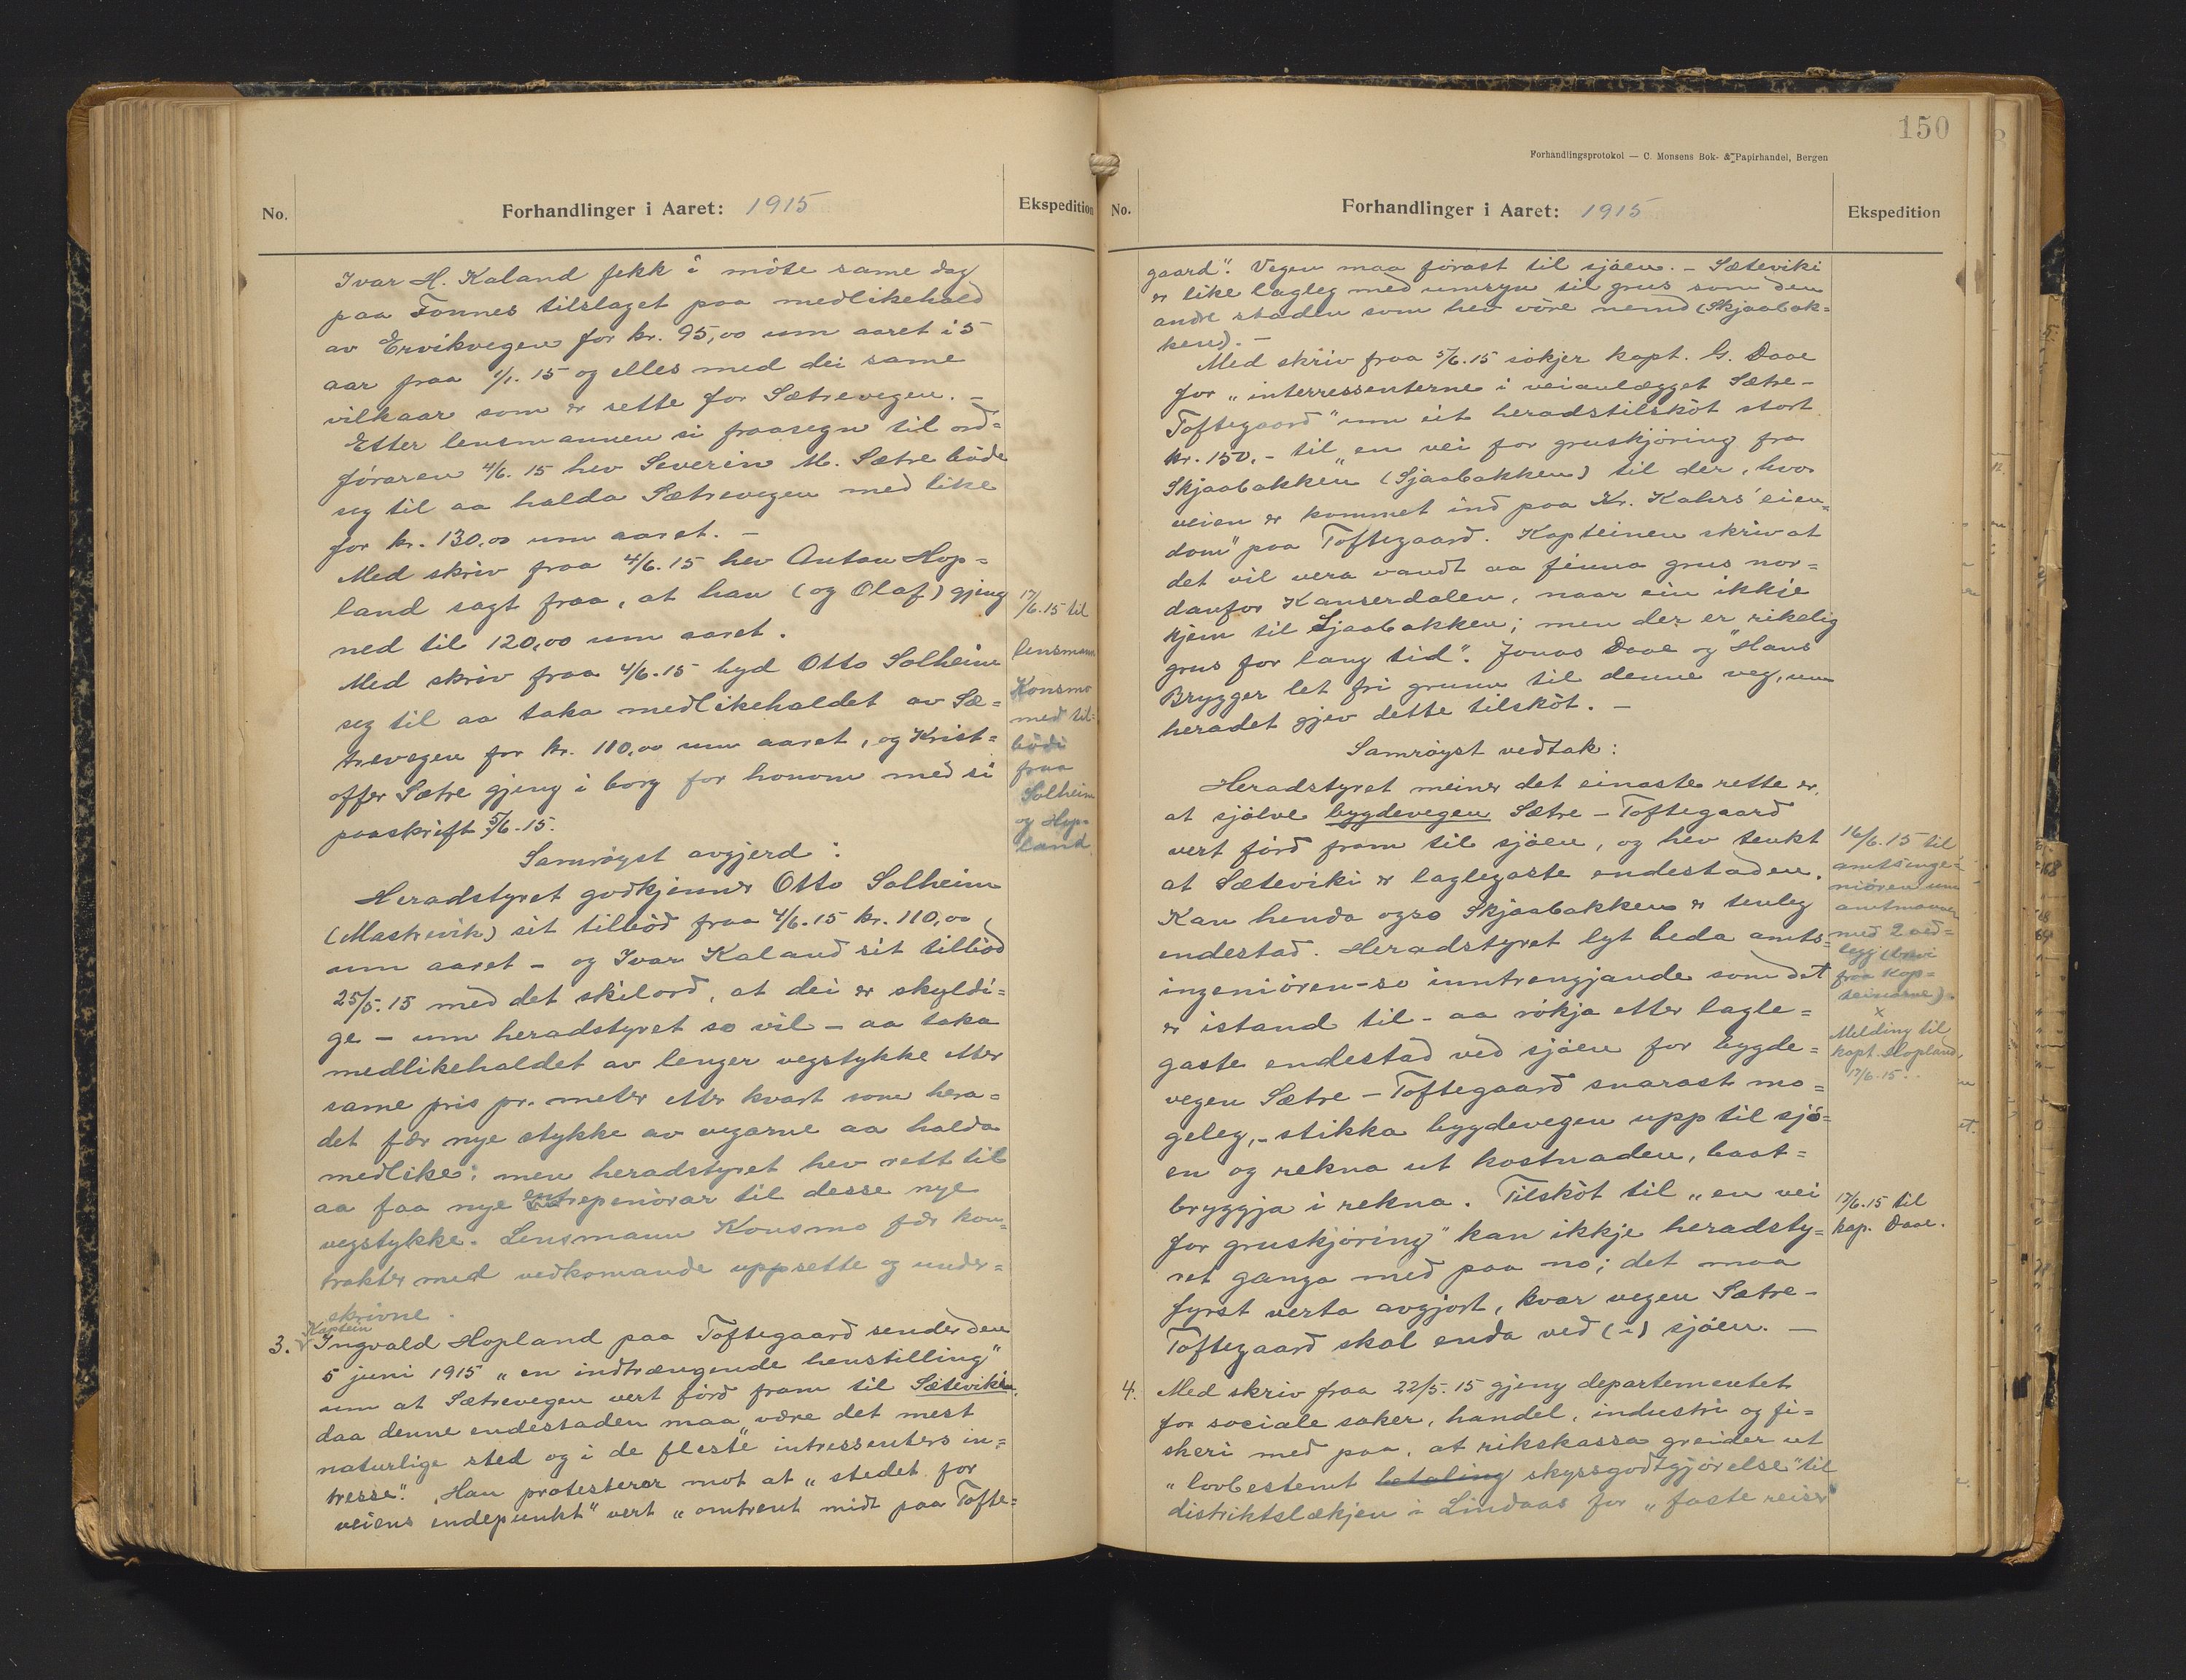 No.
Forhandlinger i Aaret: 1915
Ekspedition
Ivar H. Kaland fekk i møte same dag
paa Fonnes tilslaget paa medlikehald
av Ervikvegen for kr. 95,00 um aaret i 5
aar fraa 1/1. 15 og elles med dei same
vilkaar som er sette for Sætrevegen. –
Etter lensmannen si fraasegn til ord=
føraren 4/6. 15 hev Severin M. Sætre bøde
seg til aa halda Sætrevegen med like
for kr. 130,00 um aaret. –
Med skriv fraa 4/6. 15 hev Anton Hop=
land sagt fraa, at han (og Olaf) gjeng
ned til 120,00 um aaret.
Med skriv fraa 4/6. 15 byd Otto Solheim
seg til aa taka medlikehaldet av Sæ=
trevegen for kr. 110,00 um aaret, og Krist=
offer Sætre gjeng i borg for honom med si
paaskrift 5/6. 15.
Samrøyst avgjerd:
Heradstyret godkjenner Otto Solheim
(Mastrevik) sit tilbod fraa 4/6. 15 kr. 110,00
um aaret – og Ivar Kaland sit tilbod
25/5. 15 med det skilord, at dei er skyldi=
ge – um heradstyret so vil – aa taka
medlikehaldet av lenger vegstykke etter
same pris pr. meter etter kvart som hera=
det fær nye stykke av vegarne aa halda
medlike; men heradstyret hev rett til
aa faa nye entrepenørar til desse nye
vegstykke. Lensmann Konsmo fær kon=
trakter med vedkomande uppsette og under=
skrivne.
17/6. 15 til
lensmann
Konsmo
med til=
bodi
fraa
Solheim
og Hop=
land.
Kaptein
3. Ingvald Hopland paa Toftegaard sender den
5 juni 1915 „en indtrængende henstilling"
um at Sætrevegen vert førd fram til Sætevikin,
daa denne endestaden maa „være det mest
naturlige sted og i de fleste intressenters in=
tresse". Han protesterer mot at „stedet for
veiens endepunkt" vert „omtrent midt paa Tofte=
150
Forhandlingsprotokol — C. Monsens Bok- & Papirhandel, Bergen
No.
Forhandlinger i Aaret: 1915
Ekspedition
gaard". Vegen maa førast til sjøen. – Sæteviki
er like lagleg med umsyn til grus som den
andre staden som hev vøre nemd (Skjaabak=
ken). –
Med skriv fraa 5/6. 15 søkjer kapt. G. Daae
for „interressenterne i veianlægget Sætre–
Toftegaard" um eit heradstilskot stort
kr. 150,- til „en vei for gruskjøring fra
Skjaabakken (Sjaabakken) til der, hvor
veien er kommet ind paa Kr. Kahrs' eien=
dom" paa Toftegaard. Kapteinen skriv at
det vil vera vandt aa finna grus nor=
danfor Kanserdalen, naar ein ikkje
kjem til Sjaabakken; men der er rikelig
grus for lang tid". Jonas Daae og Hans
Brygger let fri grunn til denne veg, um
heradet gjev dette tilskot. –
Samrøyst vedtak:
Heradstyret meiner det einaste rette er,
at sjølve bygdevegen Sætre – Toftegaard
vert førd fram til sjøen, og hev tenkt
at Sæteviki er laglegaste endestaden.
Kan henda ogso Skjaabakken er tenleg
endestad. Heradstyret lyt beda amts=
ingeniøren – so inntrengjande som det
er istand til – aa røkja etter lagle=
gaste endestad ved sjøen for bygde=
vegen Sætre – Toftegaard snarast mo=
geleg, – stikka bygdevegen upp til sjø=
en og rekna ut kostnaden, baat=
bryggja i rekna. Tilskot til „en vei
for gruskjøring" kan ikkje heradsty=
ret ganga med paa no; det maa
fyrst verta avgjort, kvar vegen Sætre–
Toftegaard skal enda ved (i) sjøen. –
16/6. 15 til
amtsinge=
niøren um
amtmannen
med 2 ved=
legg (brevi
fraa kap=
teinarne).
x
Melding til
kapt. Hopland,
17/6. 15.
17/6. 15 til
kap. Daae.
4. Med skriv fraa 22/5. 15 gjeng departementet
for sociale saker, handel, industri og fi=
skeri med paa, at rikskassa greider ut
„lovbestemt betaling skyssgodtgjørelse" til
distriktslækjen i Lindaas for „faste reiser